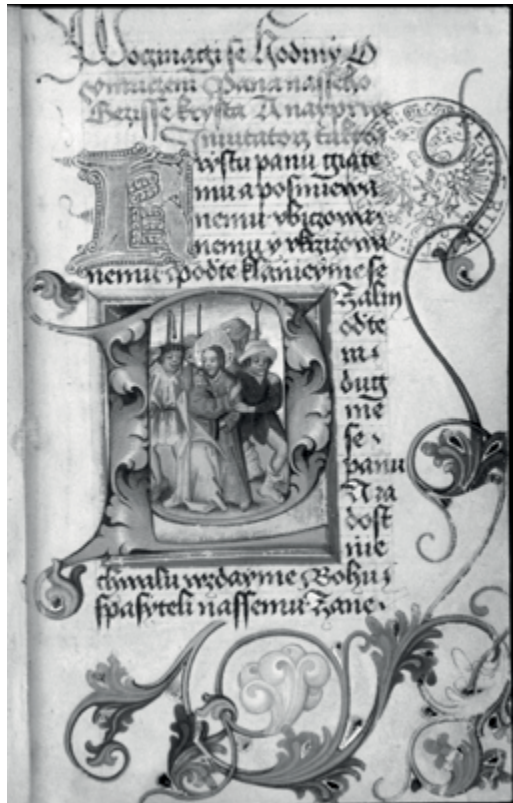 Poczinagi se Hodiny O
vmuczeni Pana nasseho
Gezisse krysta A nayprwe
takto
Krystu panu giate
mu a posmiewa
nemu vbiczowa
nemu y vkrzizowa
nemu: podte klanieyme se
Zalm
Podte
m:
dug
me
se
panu
A ra
dost
nie
chwalu wzdayme Bohu:
spasyteli nassemu Zane